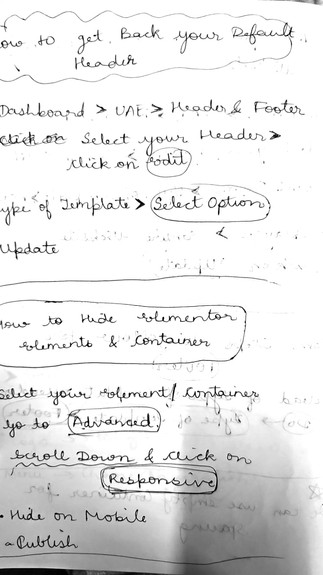 ow to get Back your Default
Header
Dashboard > UAE > Header & Footer
click on Select your Header >
click on edit
ype of Template > Select Option
Update
How to Hide Elementor
Elements & Container
Select your element/ Container
go to Advanced
Scroll Down & click on
Responsive
• Hide on Mobile
Publish